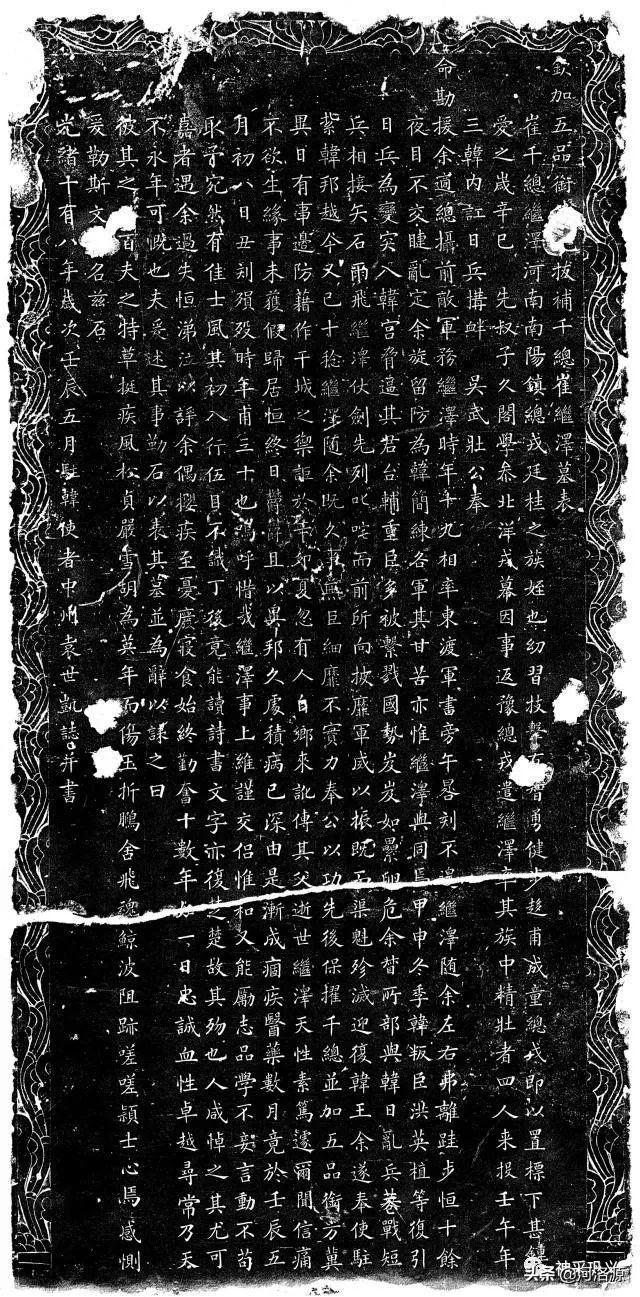 欽加五品銜拔補千總崔繼澤墓表
崔千總繼澤河南南陽鎮總戎廷桂之族姪也幼習技勇健步趫甫成童總戎即以置標下甚鍾
愛之歲辛巳 先叔子久閣學參北洋戎幕因事返豫總戎遣繼澤率其族中精壯者四人來投壬午年
三韓內訌日兵搆衅 吳武壯公奉
命勘援余適總攝前敵軍務繼澤時年十九相率東渡軍書旁午晷刻不遑繼澤隨余左右弗離跬步恒十餘
夜目不交睫亂定余旋留防為韓簡練各軍其甘苦亦惟繼澤與同焉甲申冬季韓叛臣洪英植等復引
日兵為變突入韓宮脅逼其君台輔重臣多被繫戮國勢岌岌如纍卵危余督所部與韓日亂兵巷戰短
兵相接矢石雨飛繼澤仗劍先列叱咤而前所向披靡軍威以振既而渠魁殄滅迎復韓王余遂奉使駐
紮韓邦越今又已十稔繼澤隨余既久事無巨細靡不實力奉公以功先後保擢千總並加五品銜方冀
異日有事邊防藉作干城之禦詎於年夏忽有人自鄉來訛傳其父逝世繼澤天性素篤遽爾聞信痛
不欲生緣事未獲假歸居恒終日鬱鬱且以異邦久處積病已深由是漸成痼疾醫藥數月竟於壬辰五
月初八日丑刻殞歿時年甫三十也嗚呼惜哉繼澤事上維謹交侶惟和又能厲志品學不妄言動不苟
取予宛然有佳士風其初入行伍目不識丁後竟能讀詩書文字亦復楚楚故其歿也人咸悼之其尤可
嘉者遇余過失恒涕泣以諍余偶攖疾至憂廢寢食始終勤奮十數年如一日忠誠血性卓越尋常乃天
不永年可慨也夫爰述其事勒石以表其墓並為辭以誄之曰
彼其之百夫之特草挺疾風松貞嚴雪胡為英年而傷玉折鵬舍飛魂鯨波阻跡嗟嗟穎士心焉感惻
爰勒斯文名茲石
光緒十有八年歲次壬辰五月駐韓使者中州袁世凱誌并書
头条@河洛源